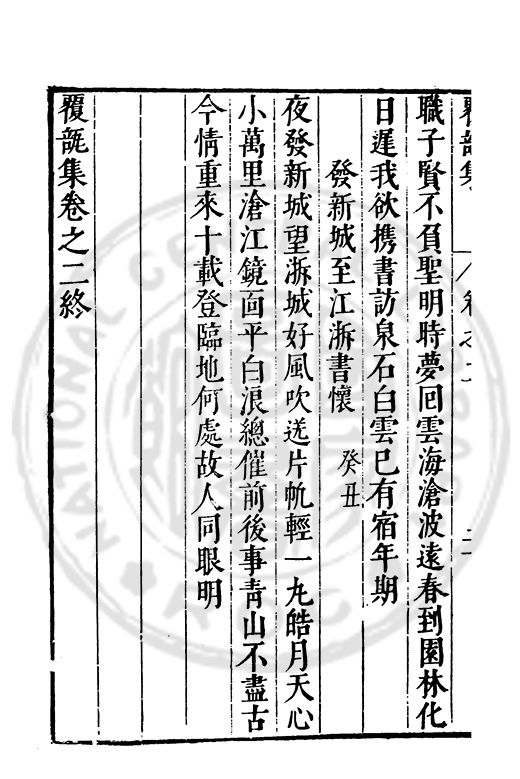 職子賢不負聖明時夢回雲海滄波遠春到園林化
日遲我欲携書訪泉石白雲已有宿年期
發新城至江浙書懷 癸丑
夜發新城望浙城好風吹送片帆輕一九皓月天心
小萬里滄江鏡面平白浪總催前後事靑山不盡古
今情重來十載登臨地何處故人同眼明
覆瓿集卷之二終